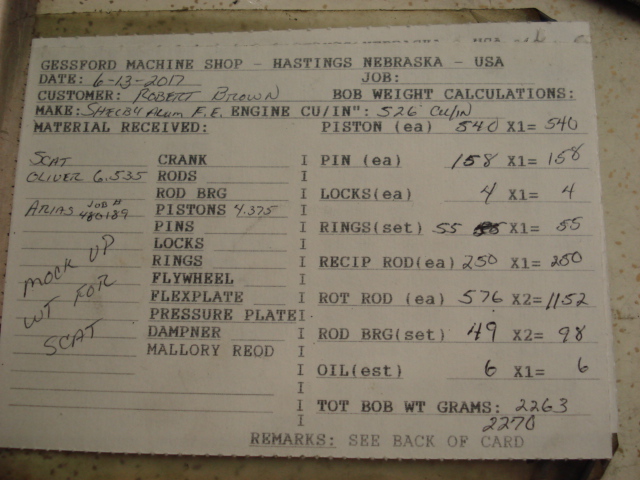 GESSFORD MACHINE SHOP - HASTINGS NEBRASKA - USA
DATE: 6-13-2017 JOB:
CUSTOMER: ROBERT BROWN BOB WEIGHT CALCULATIONS:
MAKE: SHELBY Alum F.E. ENGINE CU/IN": 526 CU/IN
MATERIAL RECEIVED: PISTON (ea) 540 X1= 540
SCAT CRANK I PIN (ea) 158 X1= 158
OLIVER 6.535 RODS I
ROD BRG I LOCKS(ea) 4 X1= 4
ARIAS JOB # 480189 PISTONS 4.375 I
PINS I RINGS(set) 55 X1= 55
LOCKS I
MOCK UP RINGS I RECIP ROD(ea) 250 X1= 250
FLYWHEEL I
WT FOR FLEXPLATE I ROT ROD (ea) 576 X2= 1152
PRESSURE PLATE I
SCAT DAMPNER I ROD BRG(set) 49 X2= 98
MALLORY REOD I
I OIL(est) 6 X1= 6
I
I TOT BOB WT GRAMS: 2263
I 2270
REMARKS: SEE BACK OF CARD